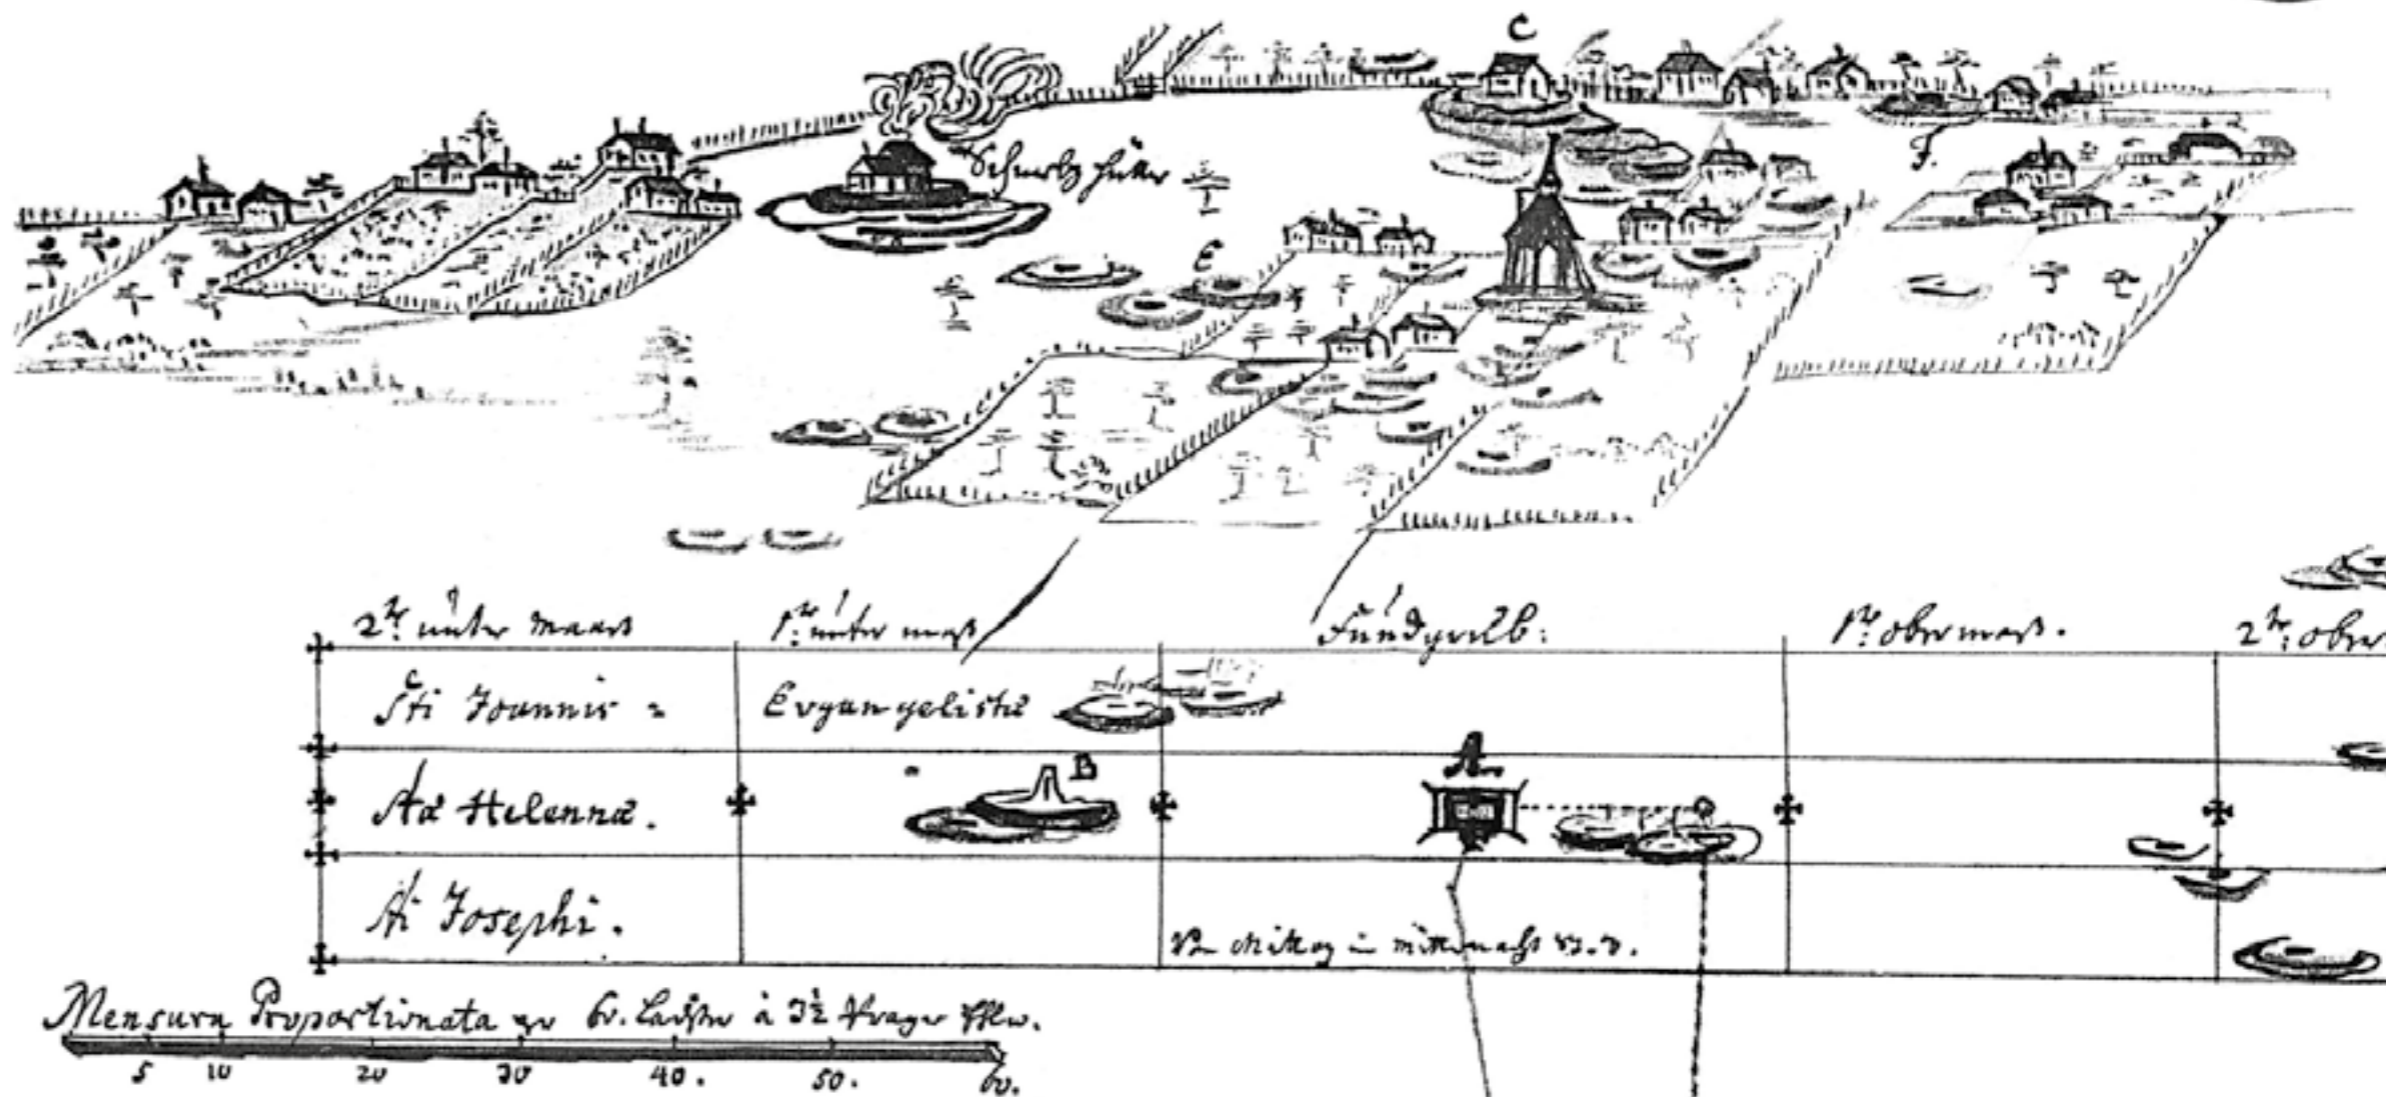 C
Schmeltz hütten
F.
E
2te unter Maas 1te unter mass Fundgrub: 1te obermass. 2te, ober
Sti Joannis = Evgangelistæ
A. B
Stæ Helennæ.
Sti Josephi.
Von Mittag in mitternacht
Mensura Proportionata per 60. Lachter à 3½ Prager Ehln.
5 10 20 30 40. 50. 60.